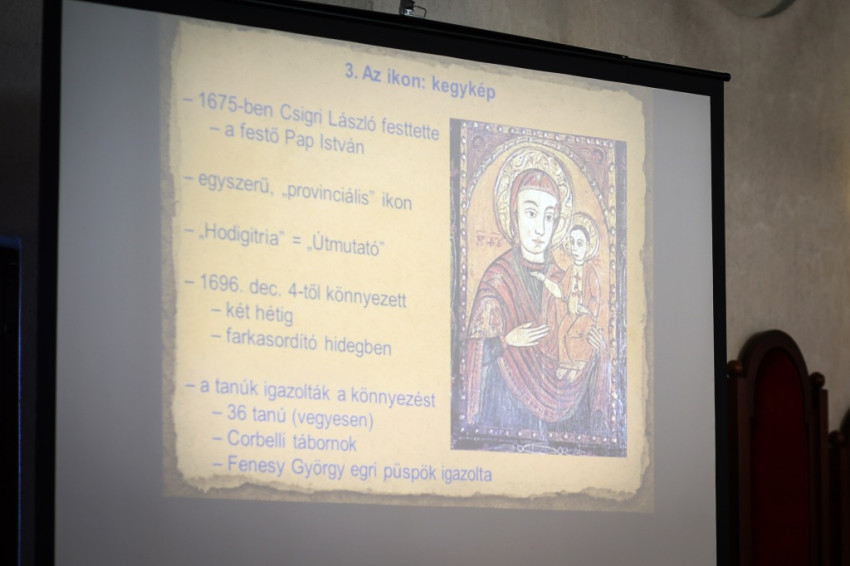 3. Az ikon: kegykép
– 1675-ben Csigri László festtette
– a festő Pap István
– egyszerű, „provinciális” ikon
– „Hodigitria” = „Útmutató”
– 1696. dec. 4-től könnyezett
– két hétig
– farkasordító hidegben
– a tanúk igazolták a könnyezést
– 36 tanú (vegyesen)
– Corbelli tábornok
– Fenesy György egri püspök igazolta